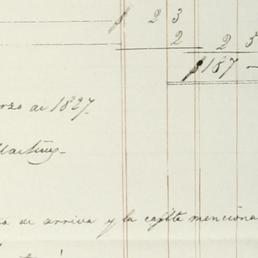 1 2 3
2 2 3
$187
rzo de 1827.
Martines
a de arriva y la cajite menciona